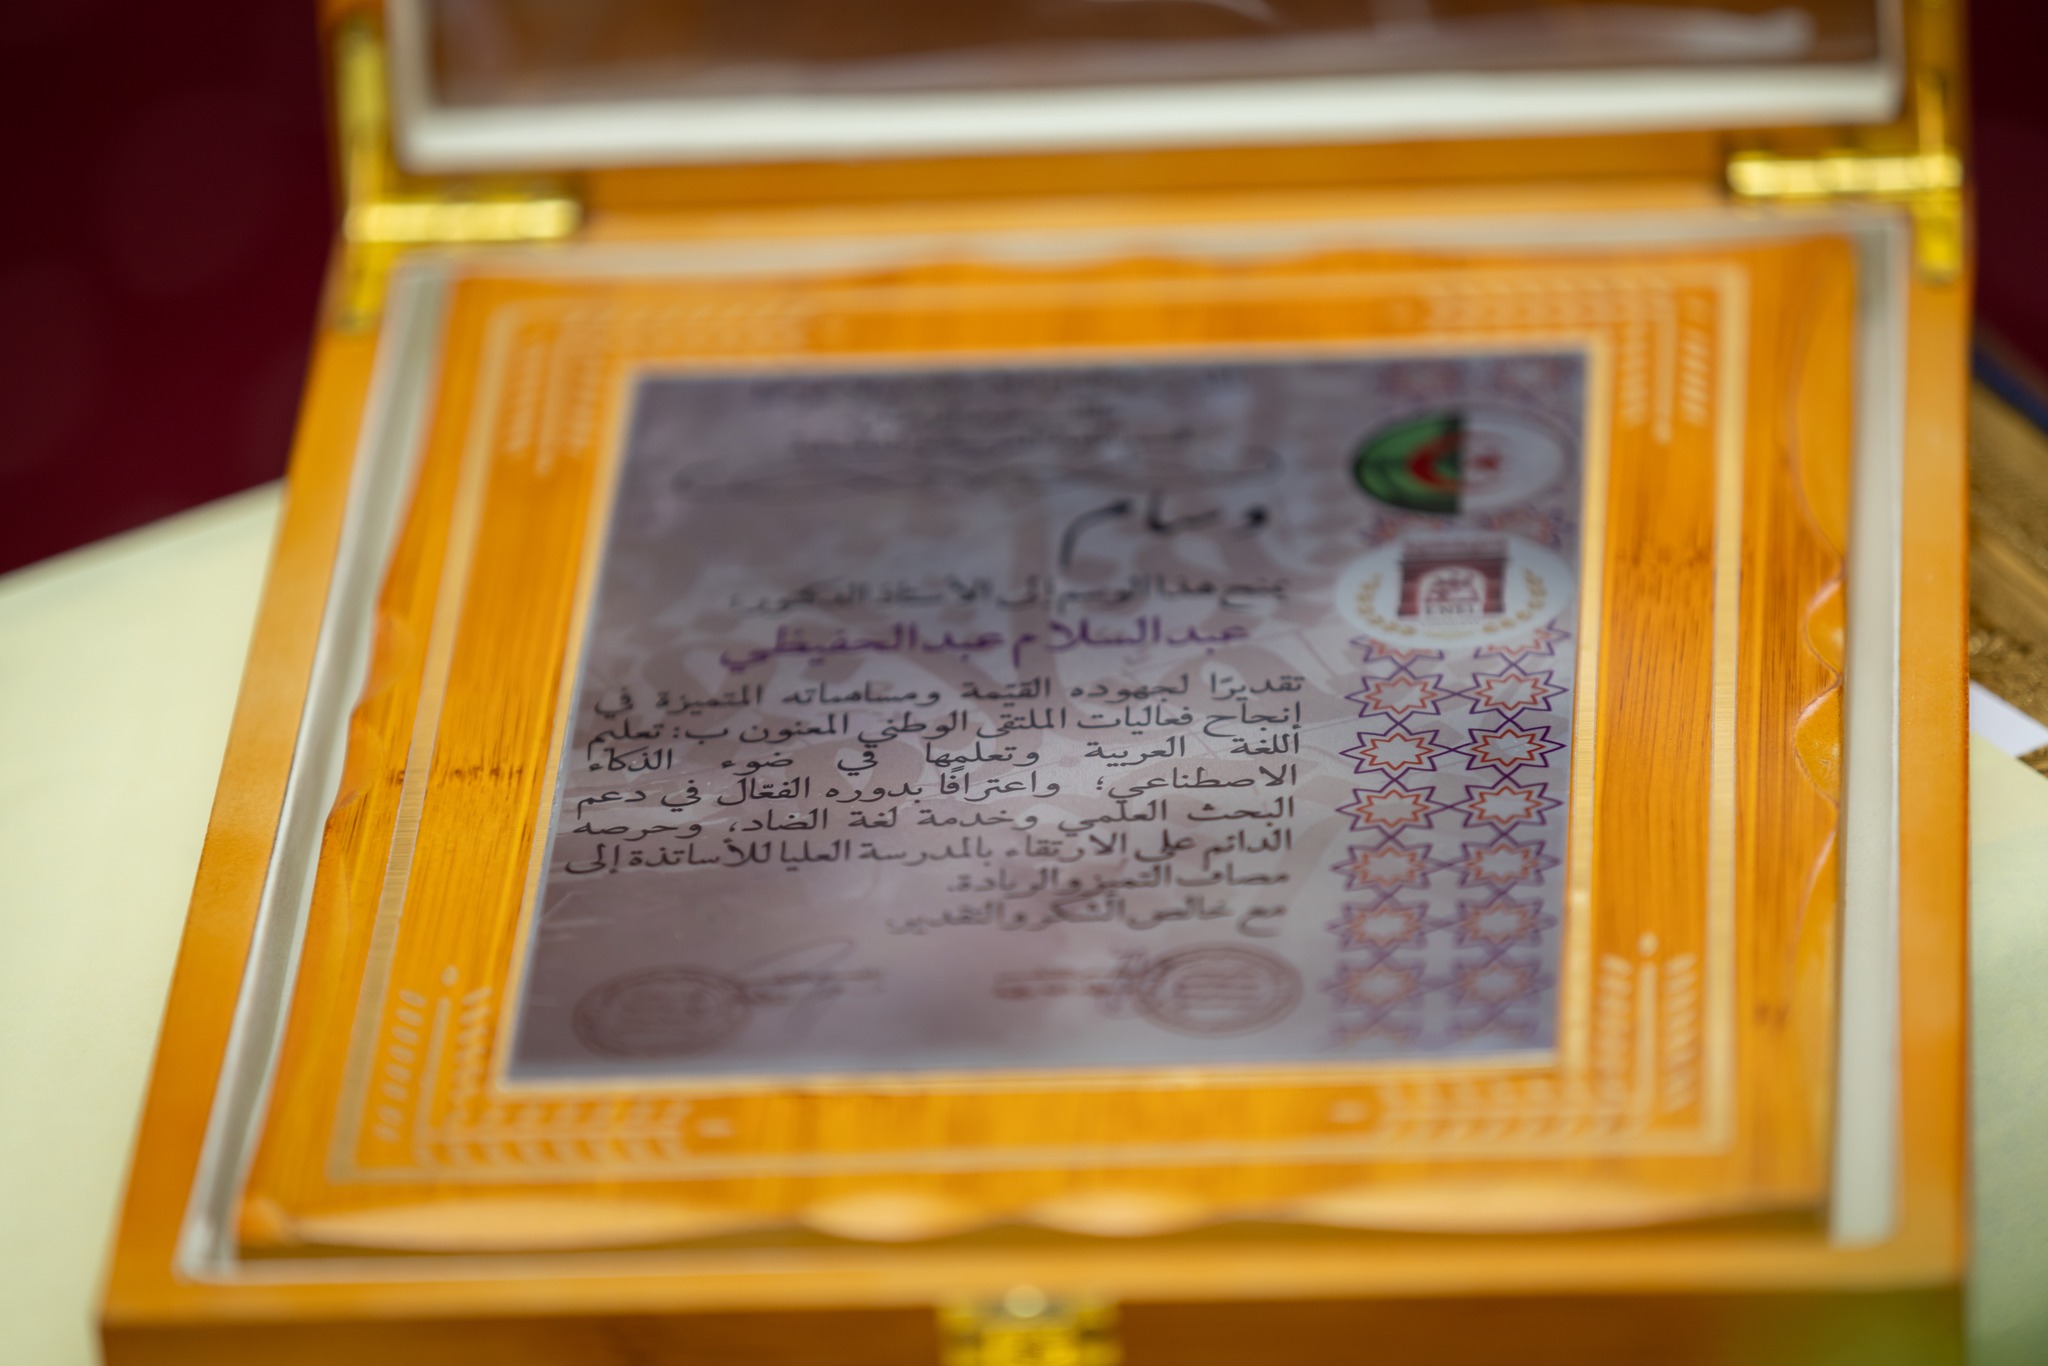 وسام
يمنح هذا الوسم إلى الأستاذ الدكتور:
عبد السلام عبد الحفيظي
تقديرًا لجهوده القيّمة ومساهماته المتميزة في
إنجاح فعاليات الملتقى الوطني المعنون ب: تعليم
اللغة العربية وتعلمها في ضوء الذكاء
الاصطناعي؛ واعترافًا بدوره الفعّال في دعم
البحث العلمي وخدمة لغة الضاد، وحرصه
الدائم على الارتقاء بالمدرسة العليا للأساتذة إلى
مصاف التميز والريادة.
مع خالص الشكر والتقدير.